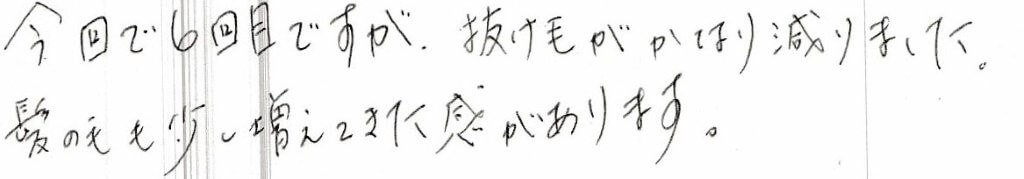 今回で6回目ですが、抜け毛がかなり減りました。
髪の毛も少し増えてきた感があります。